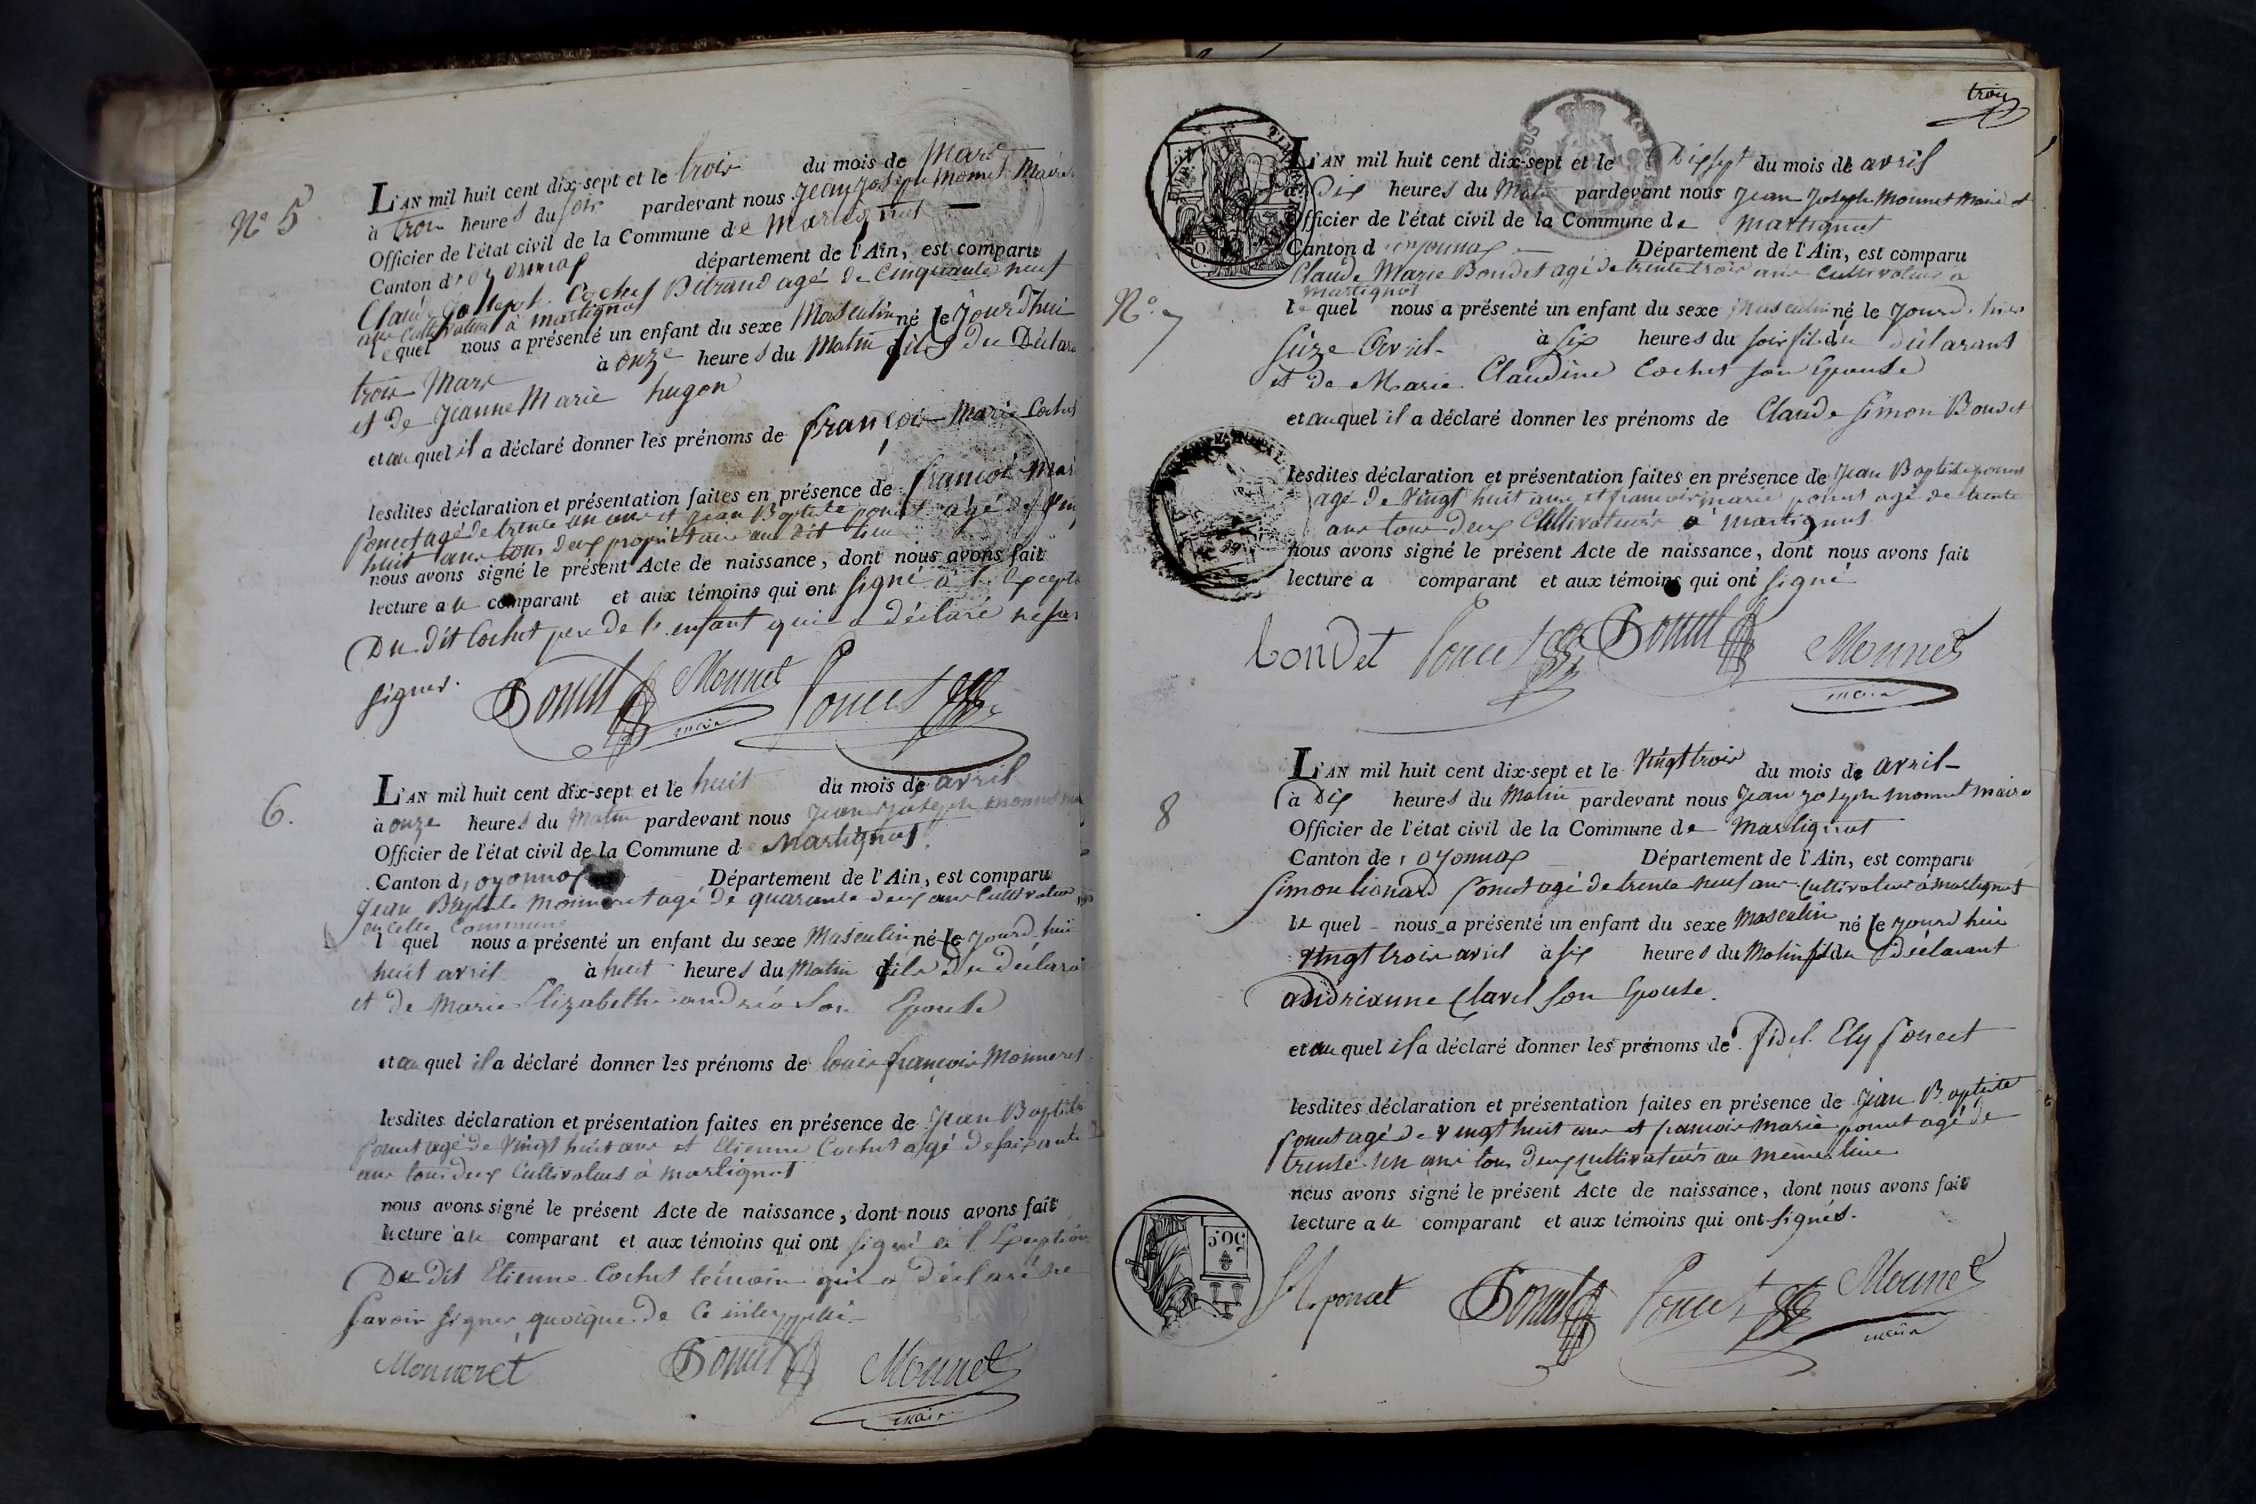 N° 5
L'AN mil huit cent dix-sept et le trois du mois de Mars
à trois heures du soir pardevant nous jean joseph Monnet Maire
Officier de l'état civil de la Commune de Martignat
Canton d'oyonnax département de l'Ain, est comparu
Claude Joseph Cochet Bitraud agé de Cinquante neuf
ans Cultivateur à martignat
lequel nous a présenté un enfant du sexe Masculin né le jourd'hui
trois Mars à onze heures du Matin fils du Déclara
et de jeanne Marie hugon
et auquel il a déclaré donner les prénoms de françois Marie Cochet
lesdites déclaration et présentation faites en présence de françois Mari
poncet agé de trente un ans et jean Baptiste poncet agé de Ving
huit ans tous deux propriétaires au dit lieu
nous avons signé le présent Acte de naissance, dont nous avons fait
lecture a le comparant et aux témoins qui ont signé à l'Excepti
Du dit Cochet pere de l'enfant qui a déclaré ne savoi
signer.
Poncet Monnet Poncet
maire
6.
L'AN mil huit cent dix-sept et le huit du mois de avril
à onze heures du Matin pardevant nous jean joseph monnet mai
Officier de l'état civil de la Commune de Martignat
Canton d'oyonnax Département de l'Ain, est comparu
jean Baptiste Monneret agé de quarante deux ans Cultivateur
en cette Commune
lequel nous a présenté un enfant du sexe Masculin né le jourd'hui
huit avril à huit heures du Matin fils du déclara
et de Marie Elizabeth andréa son Epouse
et auquel il a déclaré donner les prénoms de louis françois Monneret
lesdites déclaration et présentation faites en présence de jean Baptiste
Poncet agé de Vingt huit ans et Etienne Cochet agé de soixante
ans tous deux Cultivateurs à martignat
nous avons signé le présent Acte de naissance, dont nous avons fait
lecture a le comparant et aux témoins qui ont signé à l'Exeption
Du dit Etienne Cochet témoin qui a déclaré ne
savoir signer quoique de ce interppellé
Monneret Poncet Monnet
maire
trois
L'AN mil huit cent dix-sept et le Dix sept du mois de avril
a Dix heures du Matin pardevant nous jean joseph Monnet Maire et
Officier de l'état civil de la Commune de Martignat
Canton d'oyonnax Département de l'Ain, est comparu
Claude Marie Boudet agé de trente trois ans Cultivateur a
martignat
N° 7
le quel nous a présenté un enfant du sexe Masculin né le jourd'hier
seize Avril à six heures du soir fils du déclarant
et de Marie Claudine Cochet son Epouse
et auquel il a déclaré donner les prénoms de Claude simon Boudet
lesdites déclaration et présentation faites en présence de jean Baptiste poncet
agé de Vingt huit ans et francois marie poncet agé de trente
ans tous deux Cultivateurs à martignat
nous avons signé le présent Acte de naissance, dont nous avons fait
lecture a comparant et aux témoins qui ont signé
boudet Poncet Poncet Monnet
maire
8
L'AN mil huit cent dix-sept et le Vingt trois du mois de avril
à Dix heures du Matin pardevant nous jean joseph monnet maire
Officier de l'état civil de la Commune de Martignat
Canton de oyonnax Département de l'Ain, est comparu
simon lionard poncet agé de trente neuf ans Cultivateur à martignat
le quel nous a présenté un enfant du sexe Masculin né le jourd'hui
Vingt trois avril à six heures du Matin fils du Déclarant
andrianne Clavel son Epouse.
et auquel il a déclaré donner les prénoms de fidel Ely poncet
lesdites déclaration et présentation faites en présence de jean Baptiste
poncet agé de vingt huit ans et francois Marie poncet agé de
trente un ans tous deux cultivateurs au même lieu
nous avons signé le présent Acte de naissance, dont nous avons fait
lecture a le comparant et aux témoins qui ont signés.
50 C
poncet Poncet Poncet Monnet
maire